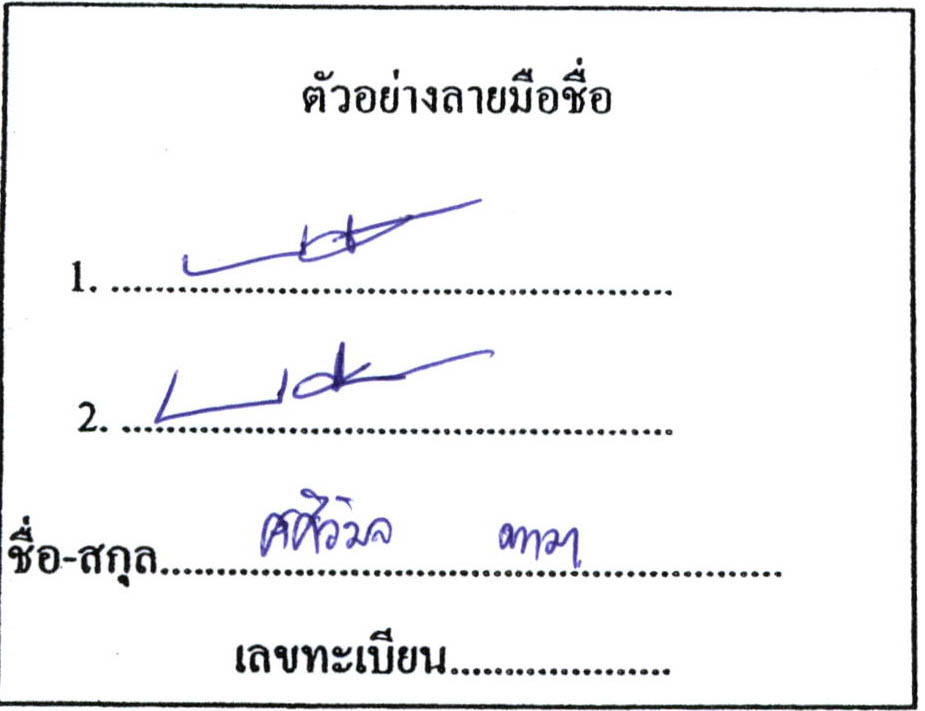 ตัวอย่างลายมือชื่อ
1. ................................................
2. ................................................
ชื่อ-สกุล.......ศศิวิมล..............................
เลขทะเบียน....................